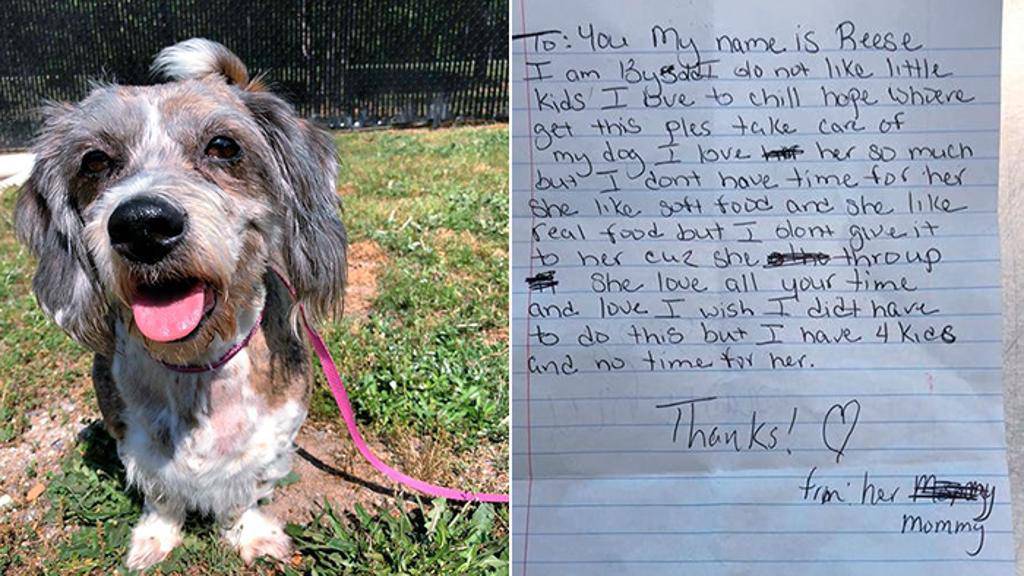 To: You My name is Reese
I am 13y I do not like little
kids I love to chill hope whoere
get this ples take care of
my dog I love her so much
but I dont have time for her
She like soft food and she like
real food but I dont give it
to her cuz she throup
She love all your time
and love I wish I didt have
to do this but I have 4 kids
and no time for her.
Thanks! ♡
from: her
mommy